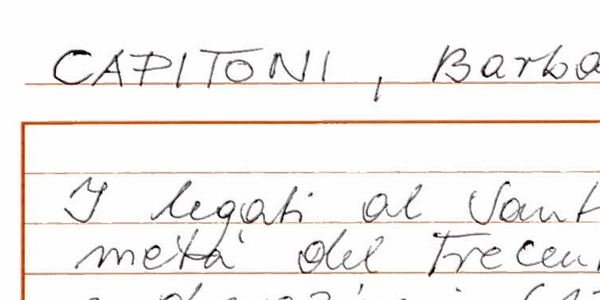 CAPITONI, Barba
I legati al Sant
metà del Trecen